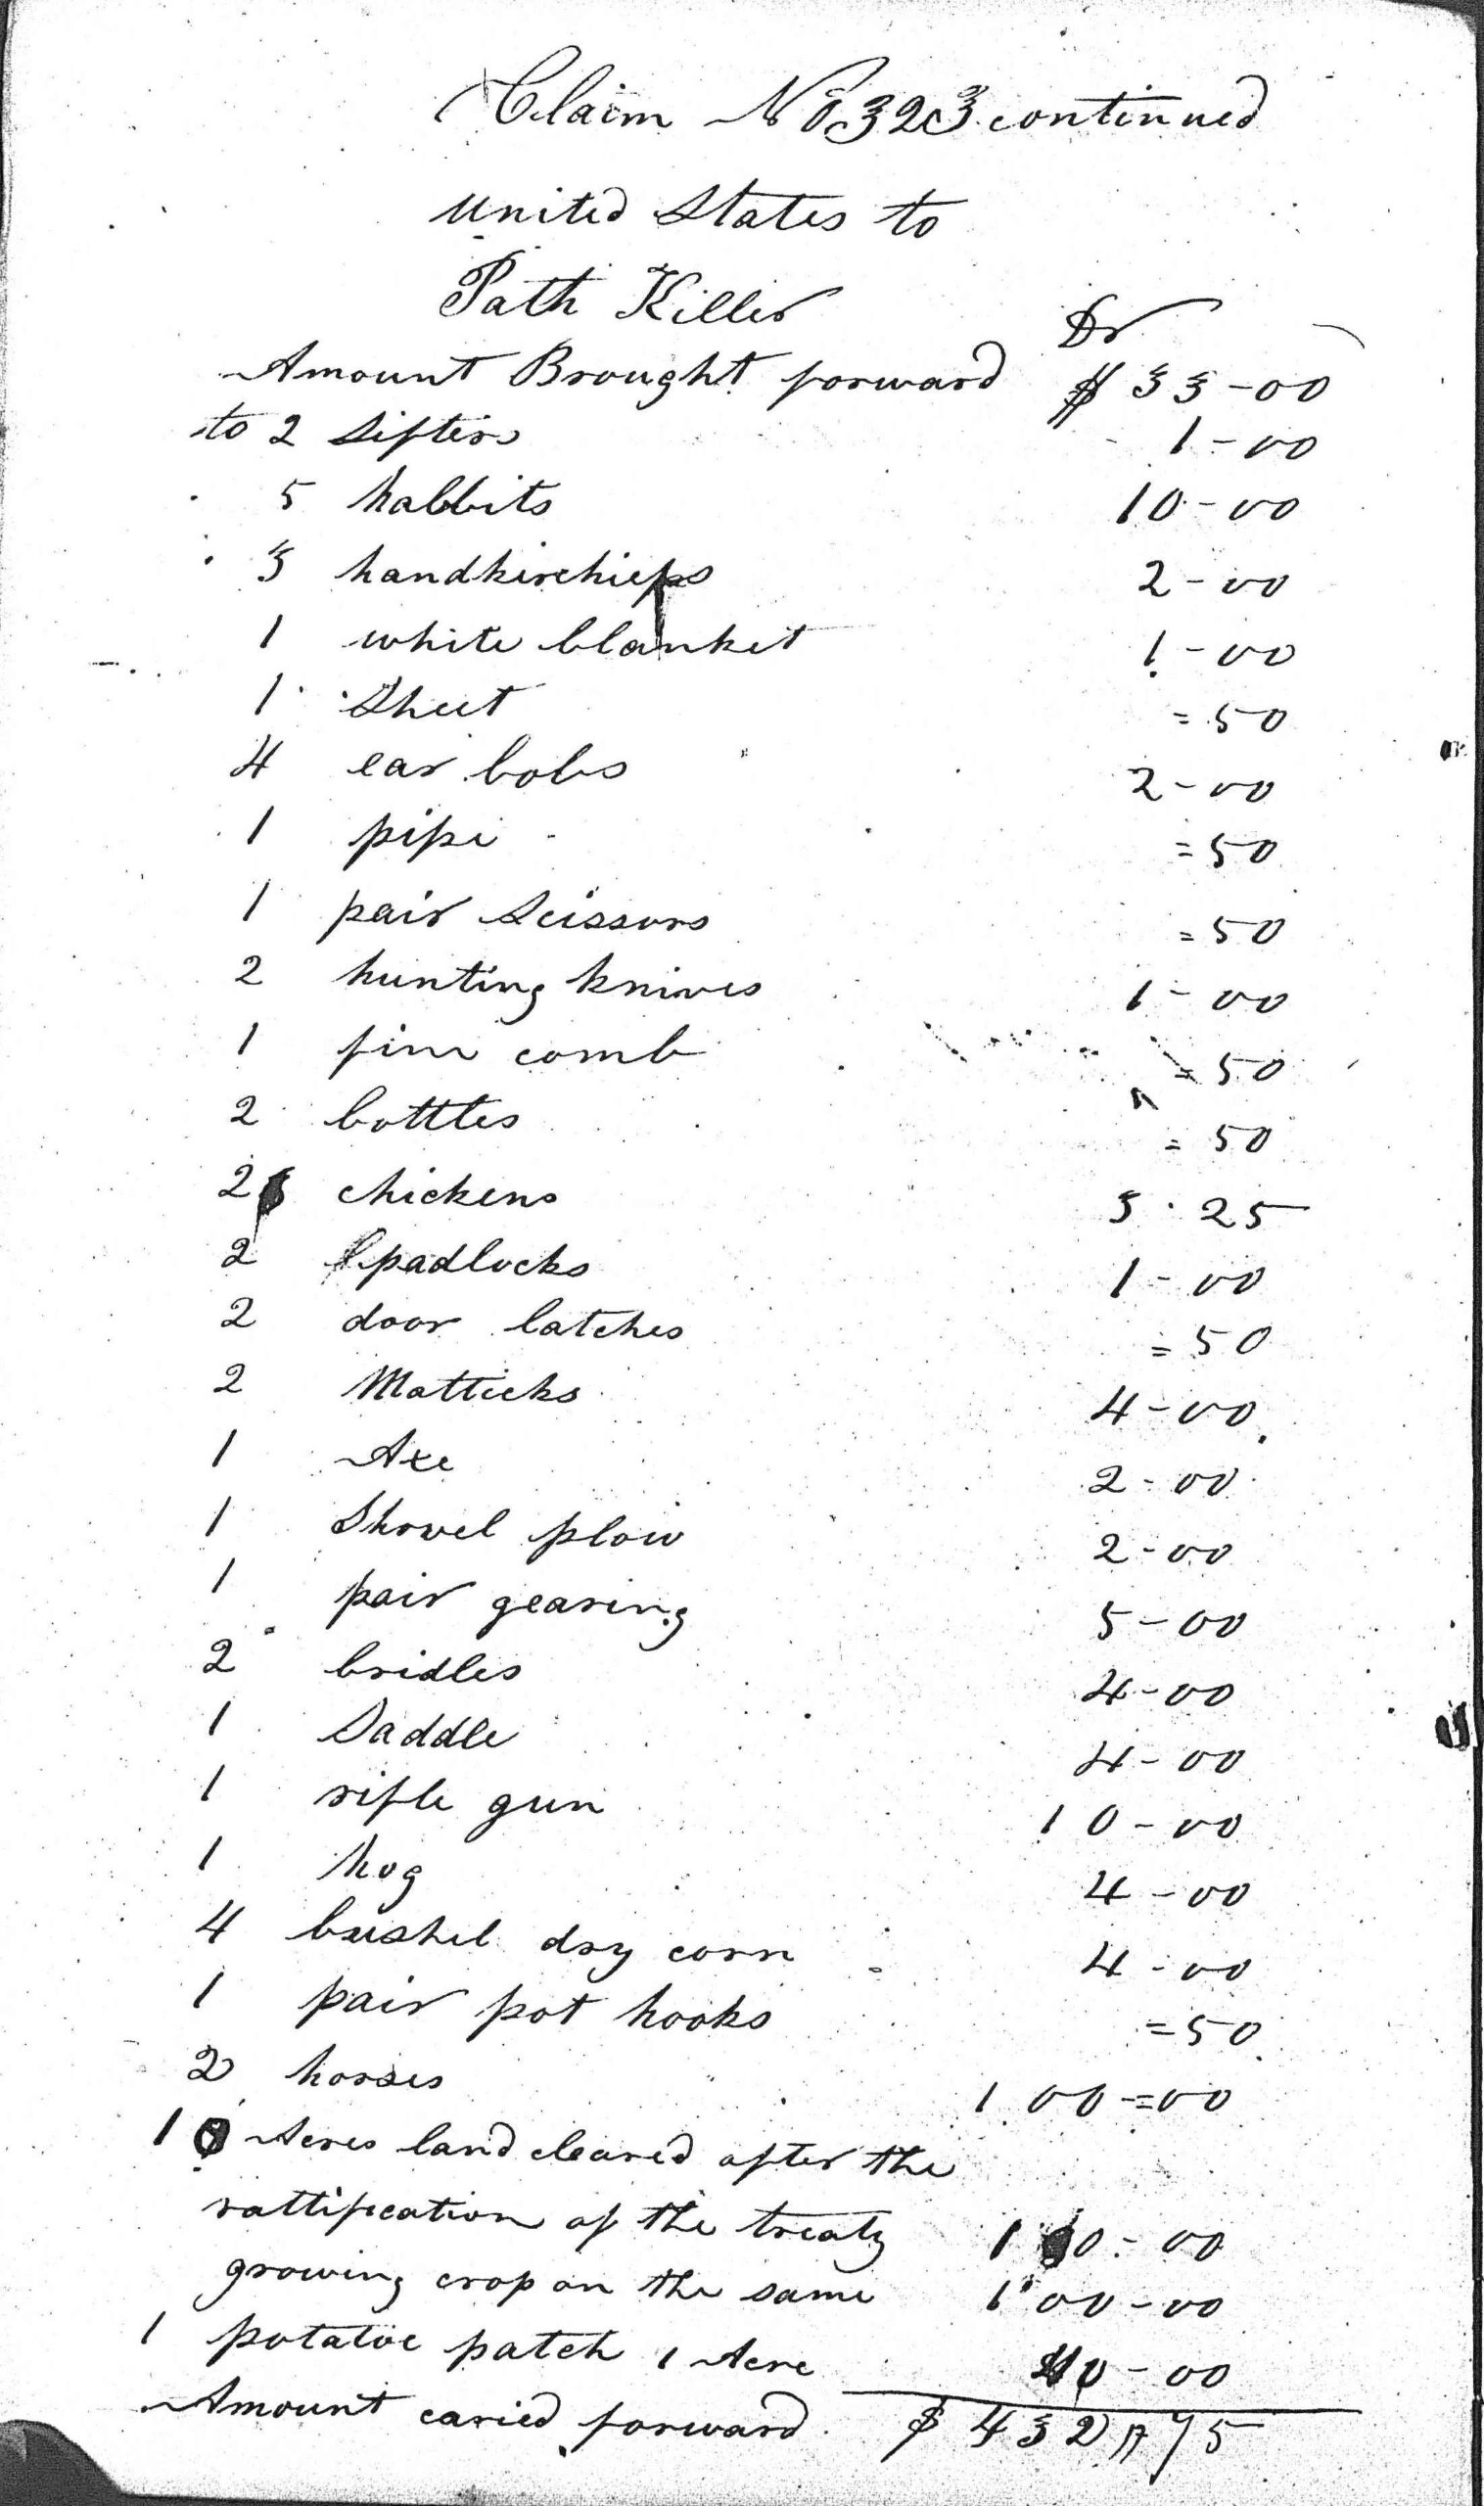 Claim No 323 continued
United States to
Path Killer
Dr
Amount Brought forward $ 33-00
to 2 Sifters 1-00
5 habbits 10-00
3 handkirchiefs 2-00
1 white blanket 1-00
1 Sheet =50
4 ear bobs 2-00
1 pipe =50
1 pair Scissors =50
2 hunting knives 1-00
1 fine comb =50
2 bottles =50
26 chickens 3.25
2 padlocks 1-00
2 door latches =50
2 Matticks 4-00
1 Axe 2-00
1 Shovel plow 2-00
1 pair gearing 5-00
2 bridles 4-00
1 Saddle 4-00
1 rifle gun 10-00
1 hog 4-00
4 bushel dry corn 4-00
1 pair pot hooks =50
2 horses 100=00
10 Acres land cleared after the
rattification of the treaty 100-00
growing crop on the same 100-00
1 potatoe patch 1 Acre 40-00
Amount caried forward $ 432"75